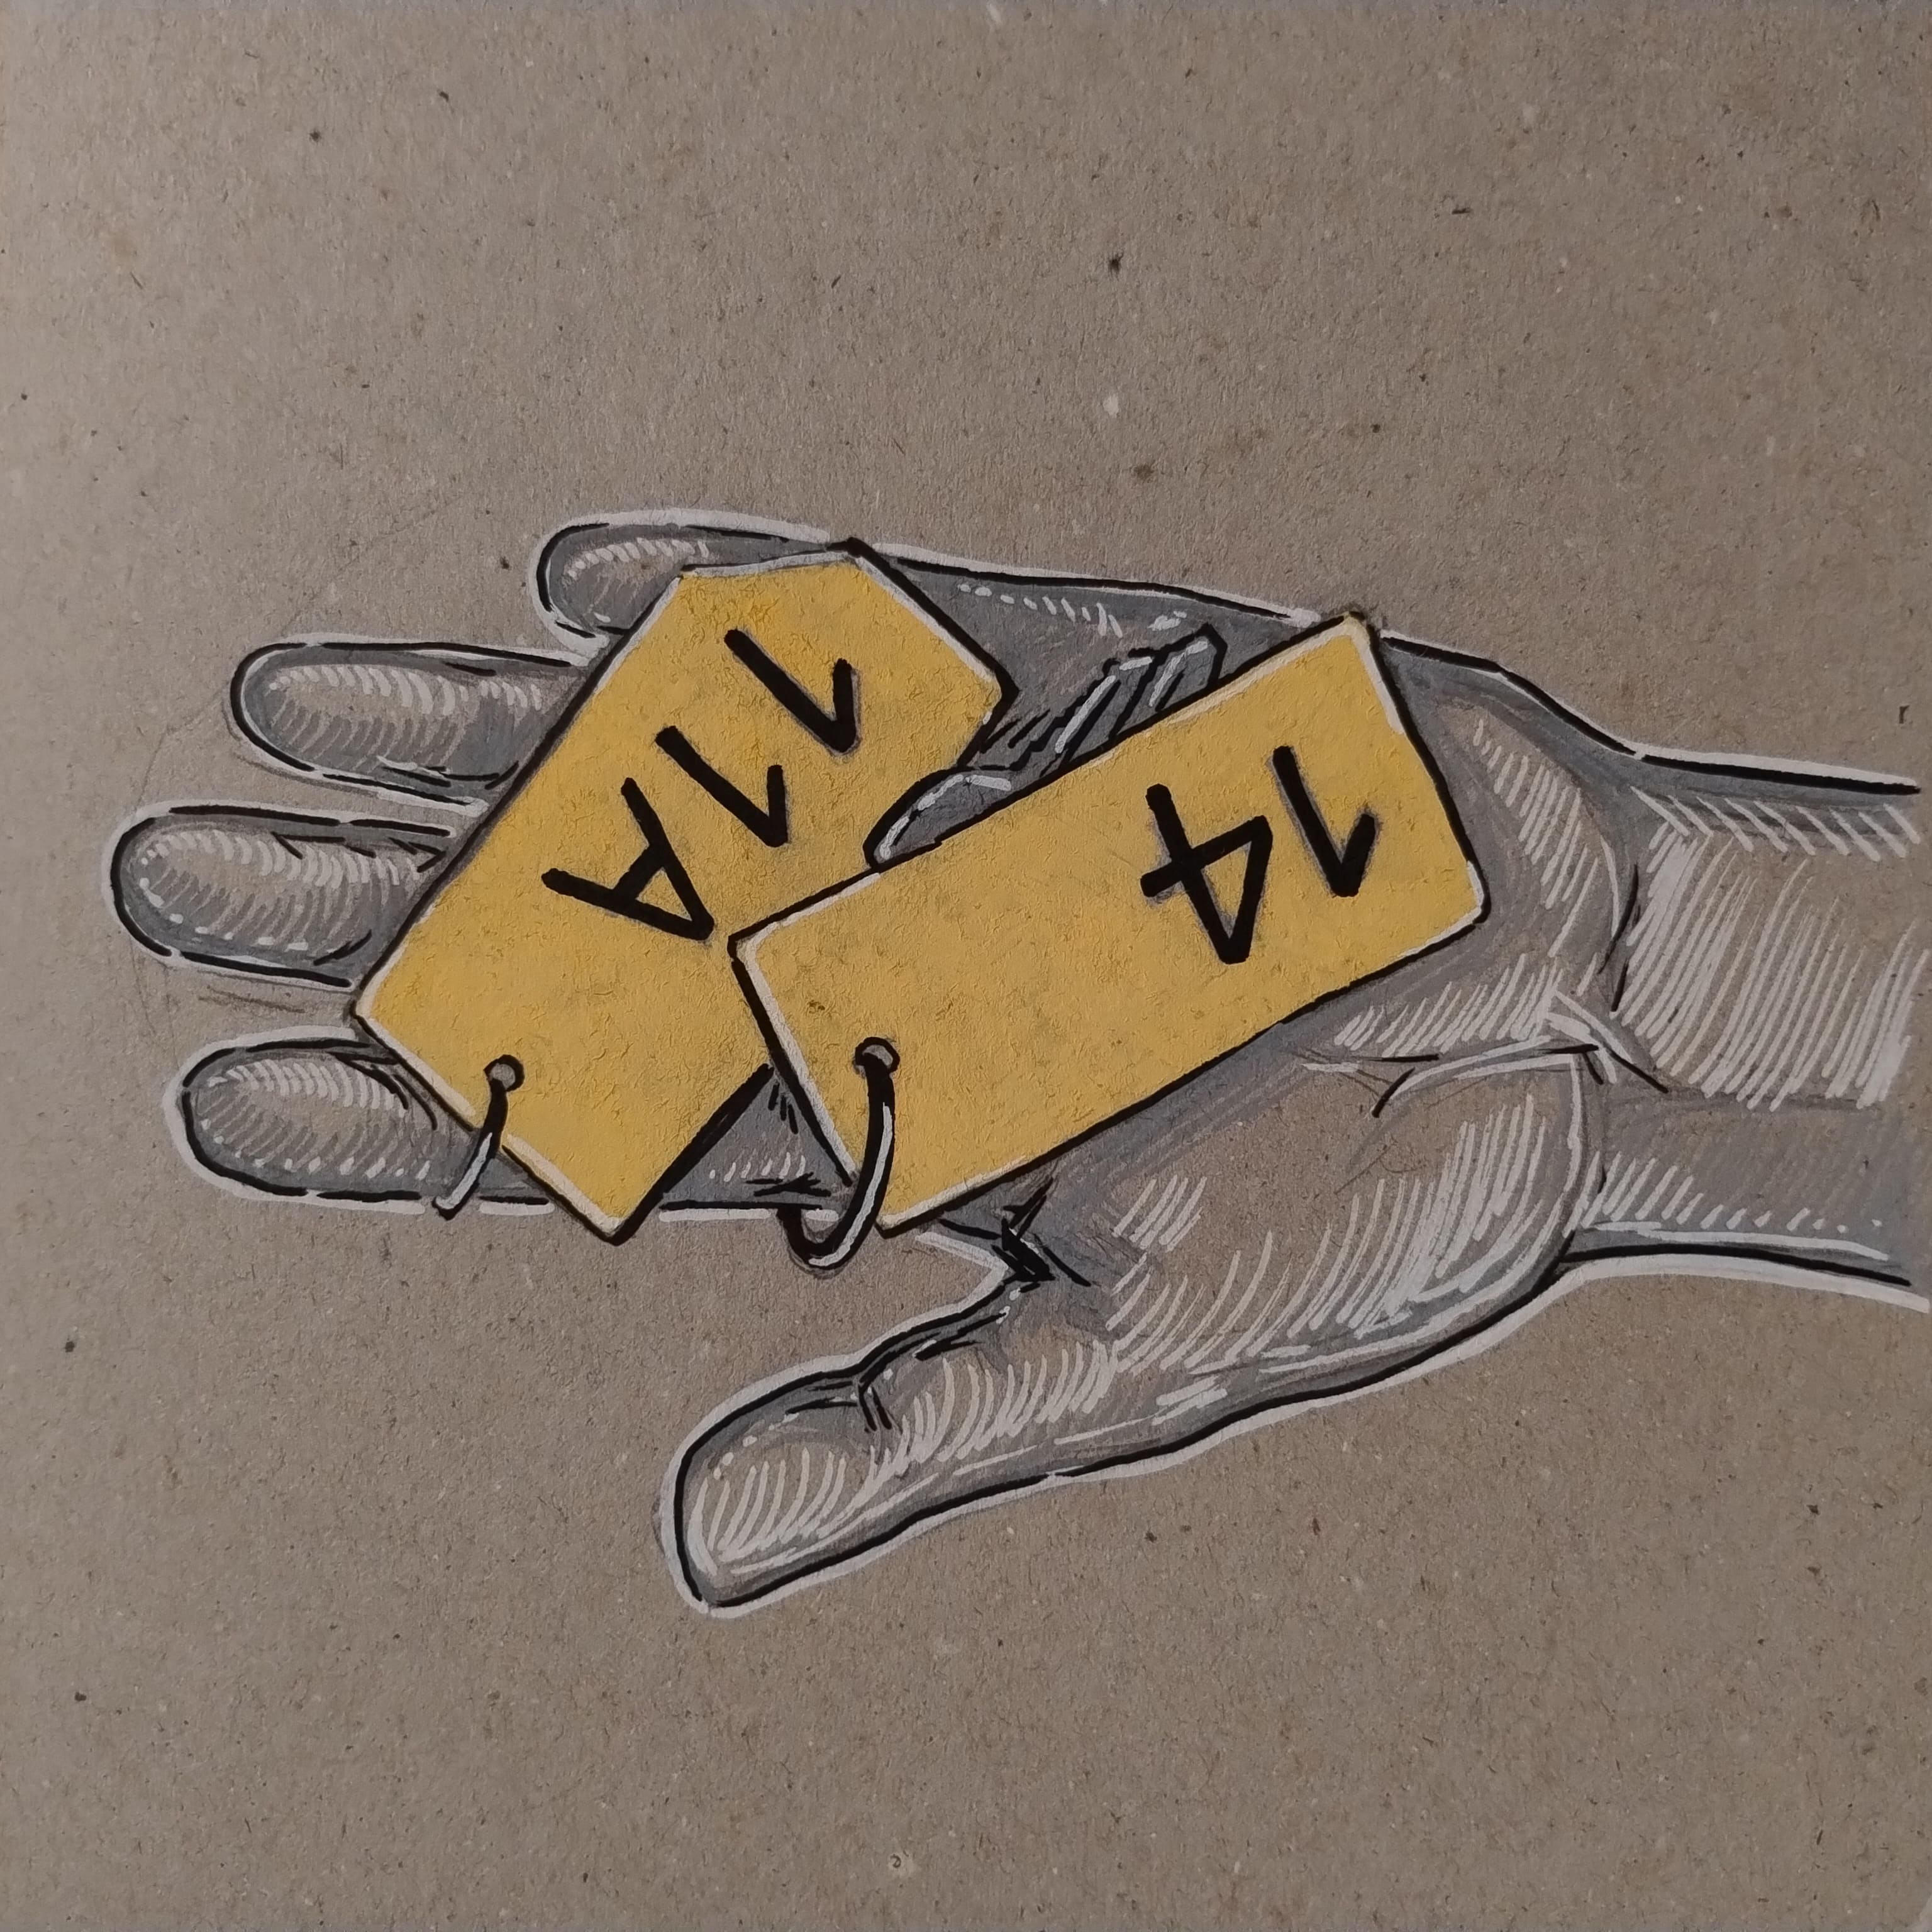 11A
14